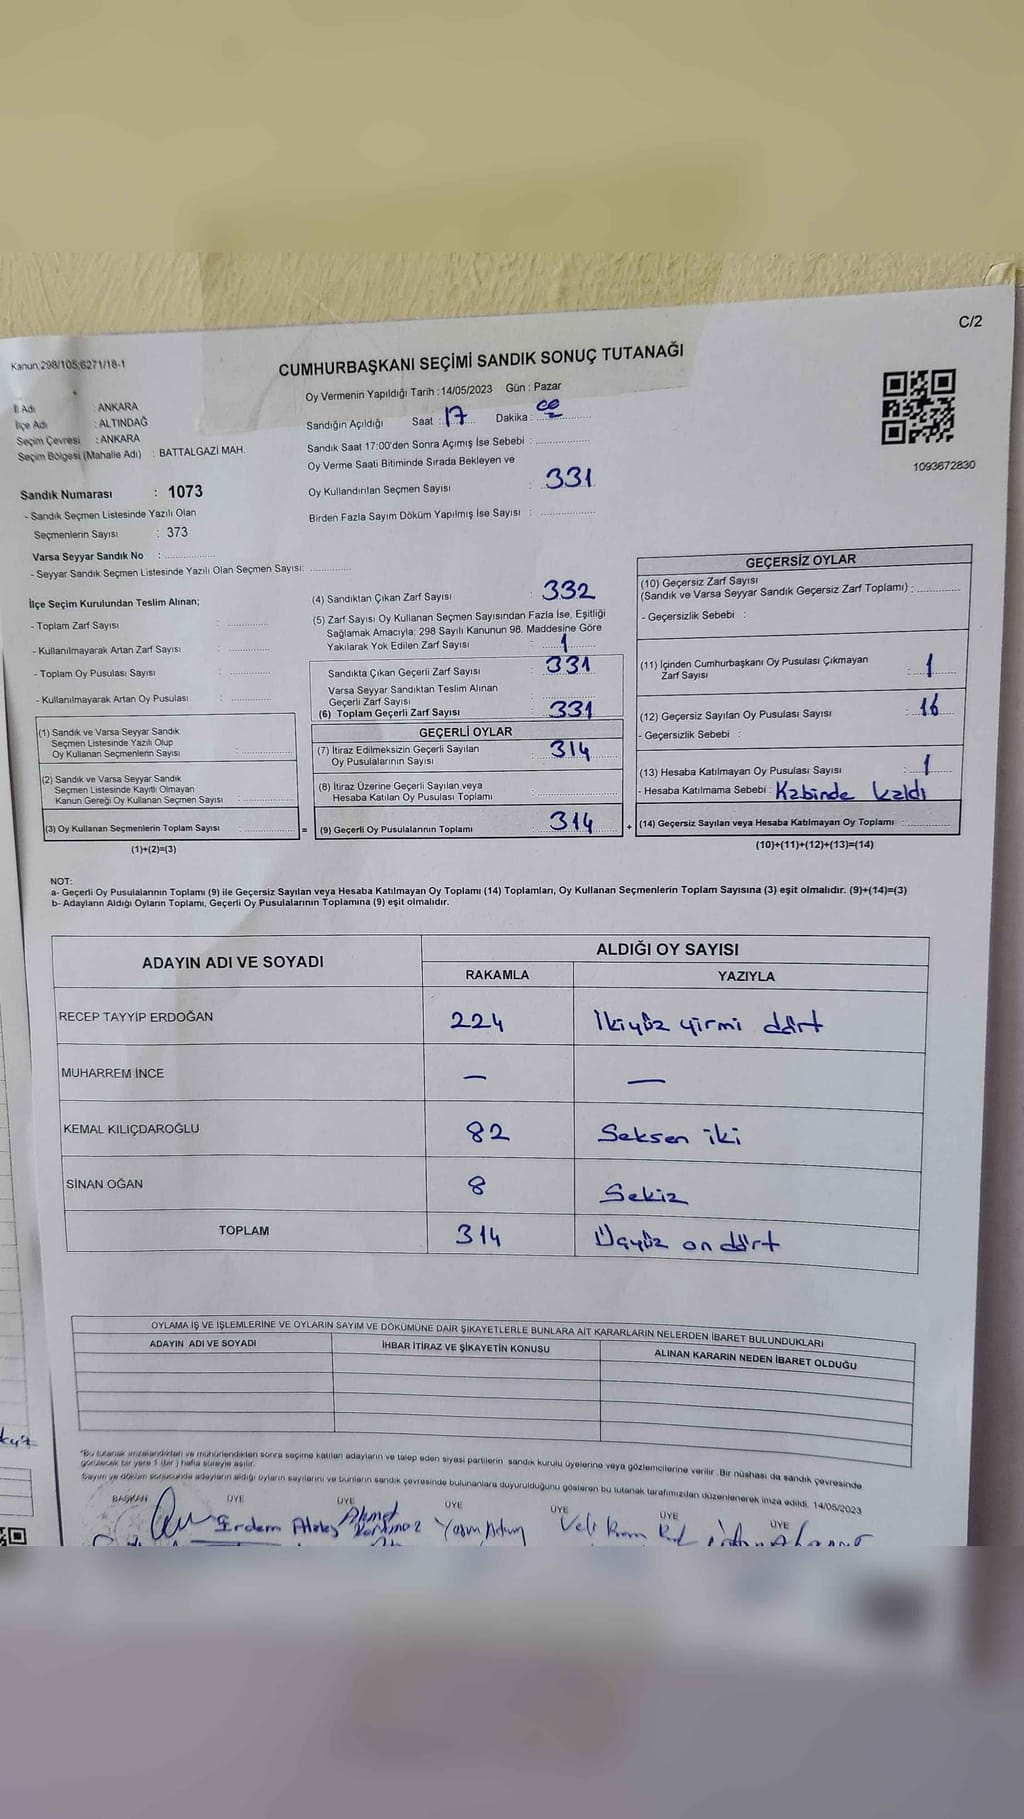 C/2
Kanun:298/105;6271/18-1
CUMHURBAŞKANI SEÇİMİ SANDIK SONUÇ TUTANAĞI
İl Adı : ANKARA
İlçe Adı : ALTINDAĞ
Seçim Çevresi : ANKARA
Seçim Bölgesi (Mahalle Adı) : BATTALGAZİ MAH.
Oy Vermenin Yapıldığı Tarih : 14/05/2023 Gün : Pazar
Sandığın Açıldığı Saat : 17 Dakika :
Sandık Saat 17:00'den Sonra Açımış İse Sebebi :
Oy Verme Saati Bitiminde Sırada Bekleyen ve
Oy Kullandırılan Seçmen Sayısı : 331
Birden Fazla Sayım Döküm Yapılmış İse Sayısı :
1093672830
Sandık Numarası : 1073
- Sandık Seçmen Listesinde Yazılı Olan
Seçmenlerin Sayısı : 373
Varsa Seyyar Sandık No :
- Seyyar Sandık Seçmen Listesinde Yazılı Olan Seçmen Sayısı:
İlçe Seçim Kurulundan Teslim Alınan;
- Toplam Zarf Sayısı :
- Kullanılmayarak Artan Zarf Sayısı :
- Toplam Oy Pusulası Sayısı :
- Kullanılmayarak Artan Oy Pusulası :
(1) Sandık ve Varsa Seyyar Sandık
Seçmen Listesinde Yazılı Olup
Oy Kullanan Seçmenlerin Sayısı :
(2) Sandık ve Varsa Seyyar Sandık
Seçmen Listesinde Kayıtlı Olmayan
Kanun Gereği Oy Kullanan Seçmen Sayısı :
(3) Oy Kullanan Seçmenlerin Toplam Sayısı : =
(1)+(2)=(3)
(4) Sandıktan Çıkan Zarf Sayısı : 332
(5) Zarf Sayısı Oy Kullanan Seçmen Sayısından Fazla İse, Eşitliği
Sağlamak Amacıyla; 298 Sayılı Kanunun 98. Maddesine Göre
Yakılarak Yok Edilen Zarf Sayısı : 1
Sandıkta Çıkan Geçerli Zarf Sayısı : 331
Varsa Seyyar Sandıktan Teslim Alınan
Geçerli Zarf Sayısı :
(6) Toplam Geçerli Zarf Sayısı : 331
GEÇERLİ OYLAR
(7) İtiraz Edilmeksizin Geçerli Sayılan
Oy Pusulalarının Sayısı : 314
(8) İtiraz Üzerine Geçerli Sayılan veya
Hesaba Katılan Oy Pusulası Toplamı :
(9) Geçerli Oy Pusulalarının Toplamı : 314 +
GEÇERSİZ OYLAR
(10) Geçersiz Zarf Sayısı
(Sandık ve Varsa Seyyar Sandık Geçersiz Zarf Toplamı) :
- Geçersizlik Sebebi :
(11) İçinden Cumhurbaşkanı Oy Pusulası Çıkmayan
Zarf Sayısı : 1
(12) Geçersiz Sayılan Oy Pusulası Sayısı : 16
- Geçersizlik Sebebi :
(13) Hesaba Katılmayan Oy Pusulası Sayısı : 1
- Hesaba Katılmama Sebebi : Kabinde kaldı
(14) Geçersiz Sayılan veya Hesaba Katılmayan Oy Toplamı :
(10)+(11)+(12)+(13)=(14)
NOT:
a- Geçerli Oy Pusulalarının Toplamı (9) ile Geçersiz Sayılan veya Hesaba Katılmayan Oy Toplamı (14) Toplamları, Oy Kullanan Seçmenlerin Toplam Sayısına (3) eşit olmalıdır. (9)+(14)=(3)
b- Adayların Aldığı Oyların Toplamı, Geçerli Oy Pusulalarının Toplamına (9) eşit olmalıdır.
ADAYIN ADI VE SOYADI
ALDIĞI OY SAYISI
RAKAMLA YAZIYLA
RECEP TAYYİP ERDOĞAN 224 İkiyüz yirmi dört
MUHARREM İNCE — —
KEMAL KILIÇDAROĞLU 82 Seksen iki
SİNAN OĞAN 8 Sekiz
TOPLAM 314 Üçyüz on dört
OYLAMA İŞ VE İŞLEMLERİNE VE OYLARIN SAYIM VE DÖKÜMÜNE DAİR ŞİKAYETLERLE BUNLARA AİT KARARLARIN NELERDEN İBARET BULUNDUKLARI
ADAYIN ADI VE SOYADI İHBAR İTİRAZ VE ŞİKAYETİN KONUSU ALINAN KARARIN NEDEN İBARET OLDUĞU
*Bu tutanak imzalandıktan ve mühürlendikten sonra seçime katılan adayların ve talep eden siyasi partilerin sandık kurulu üyelerine veya gözlemcilerine verilir. Bir nüshası da sandık çevresinde
görülecek bir yere 1 (bir) hafta süreyle asılır.
Sayım ve döküm sonucunda adayların aldığı oyların sayılarını ve bunların sandık çevresinde bulunanlara duyurulduğunu gösteren bu tutanak tarafımızdan düzenlenerek imza edildi. 14/05/2023
BAŞKAN ÜYE ÜYE ÜYE ÜYE ÜYE ÜYE
Erdem Ahmet Veli